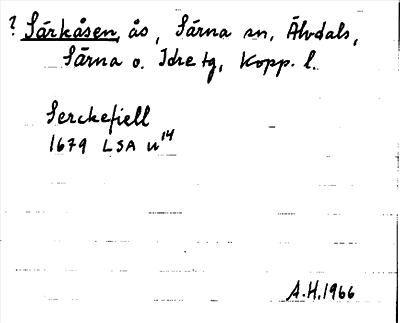 ? Särkåsen, ås, Särna sn, Älvdals,
Särna o. Idre tg, Kopp. l.
Serckefiell
1679 LSA u¹⁴
A.H. 1966